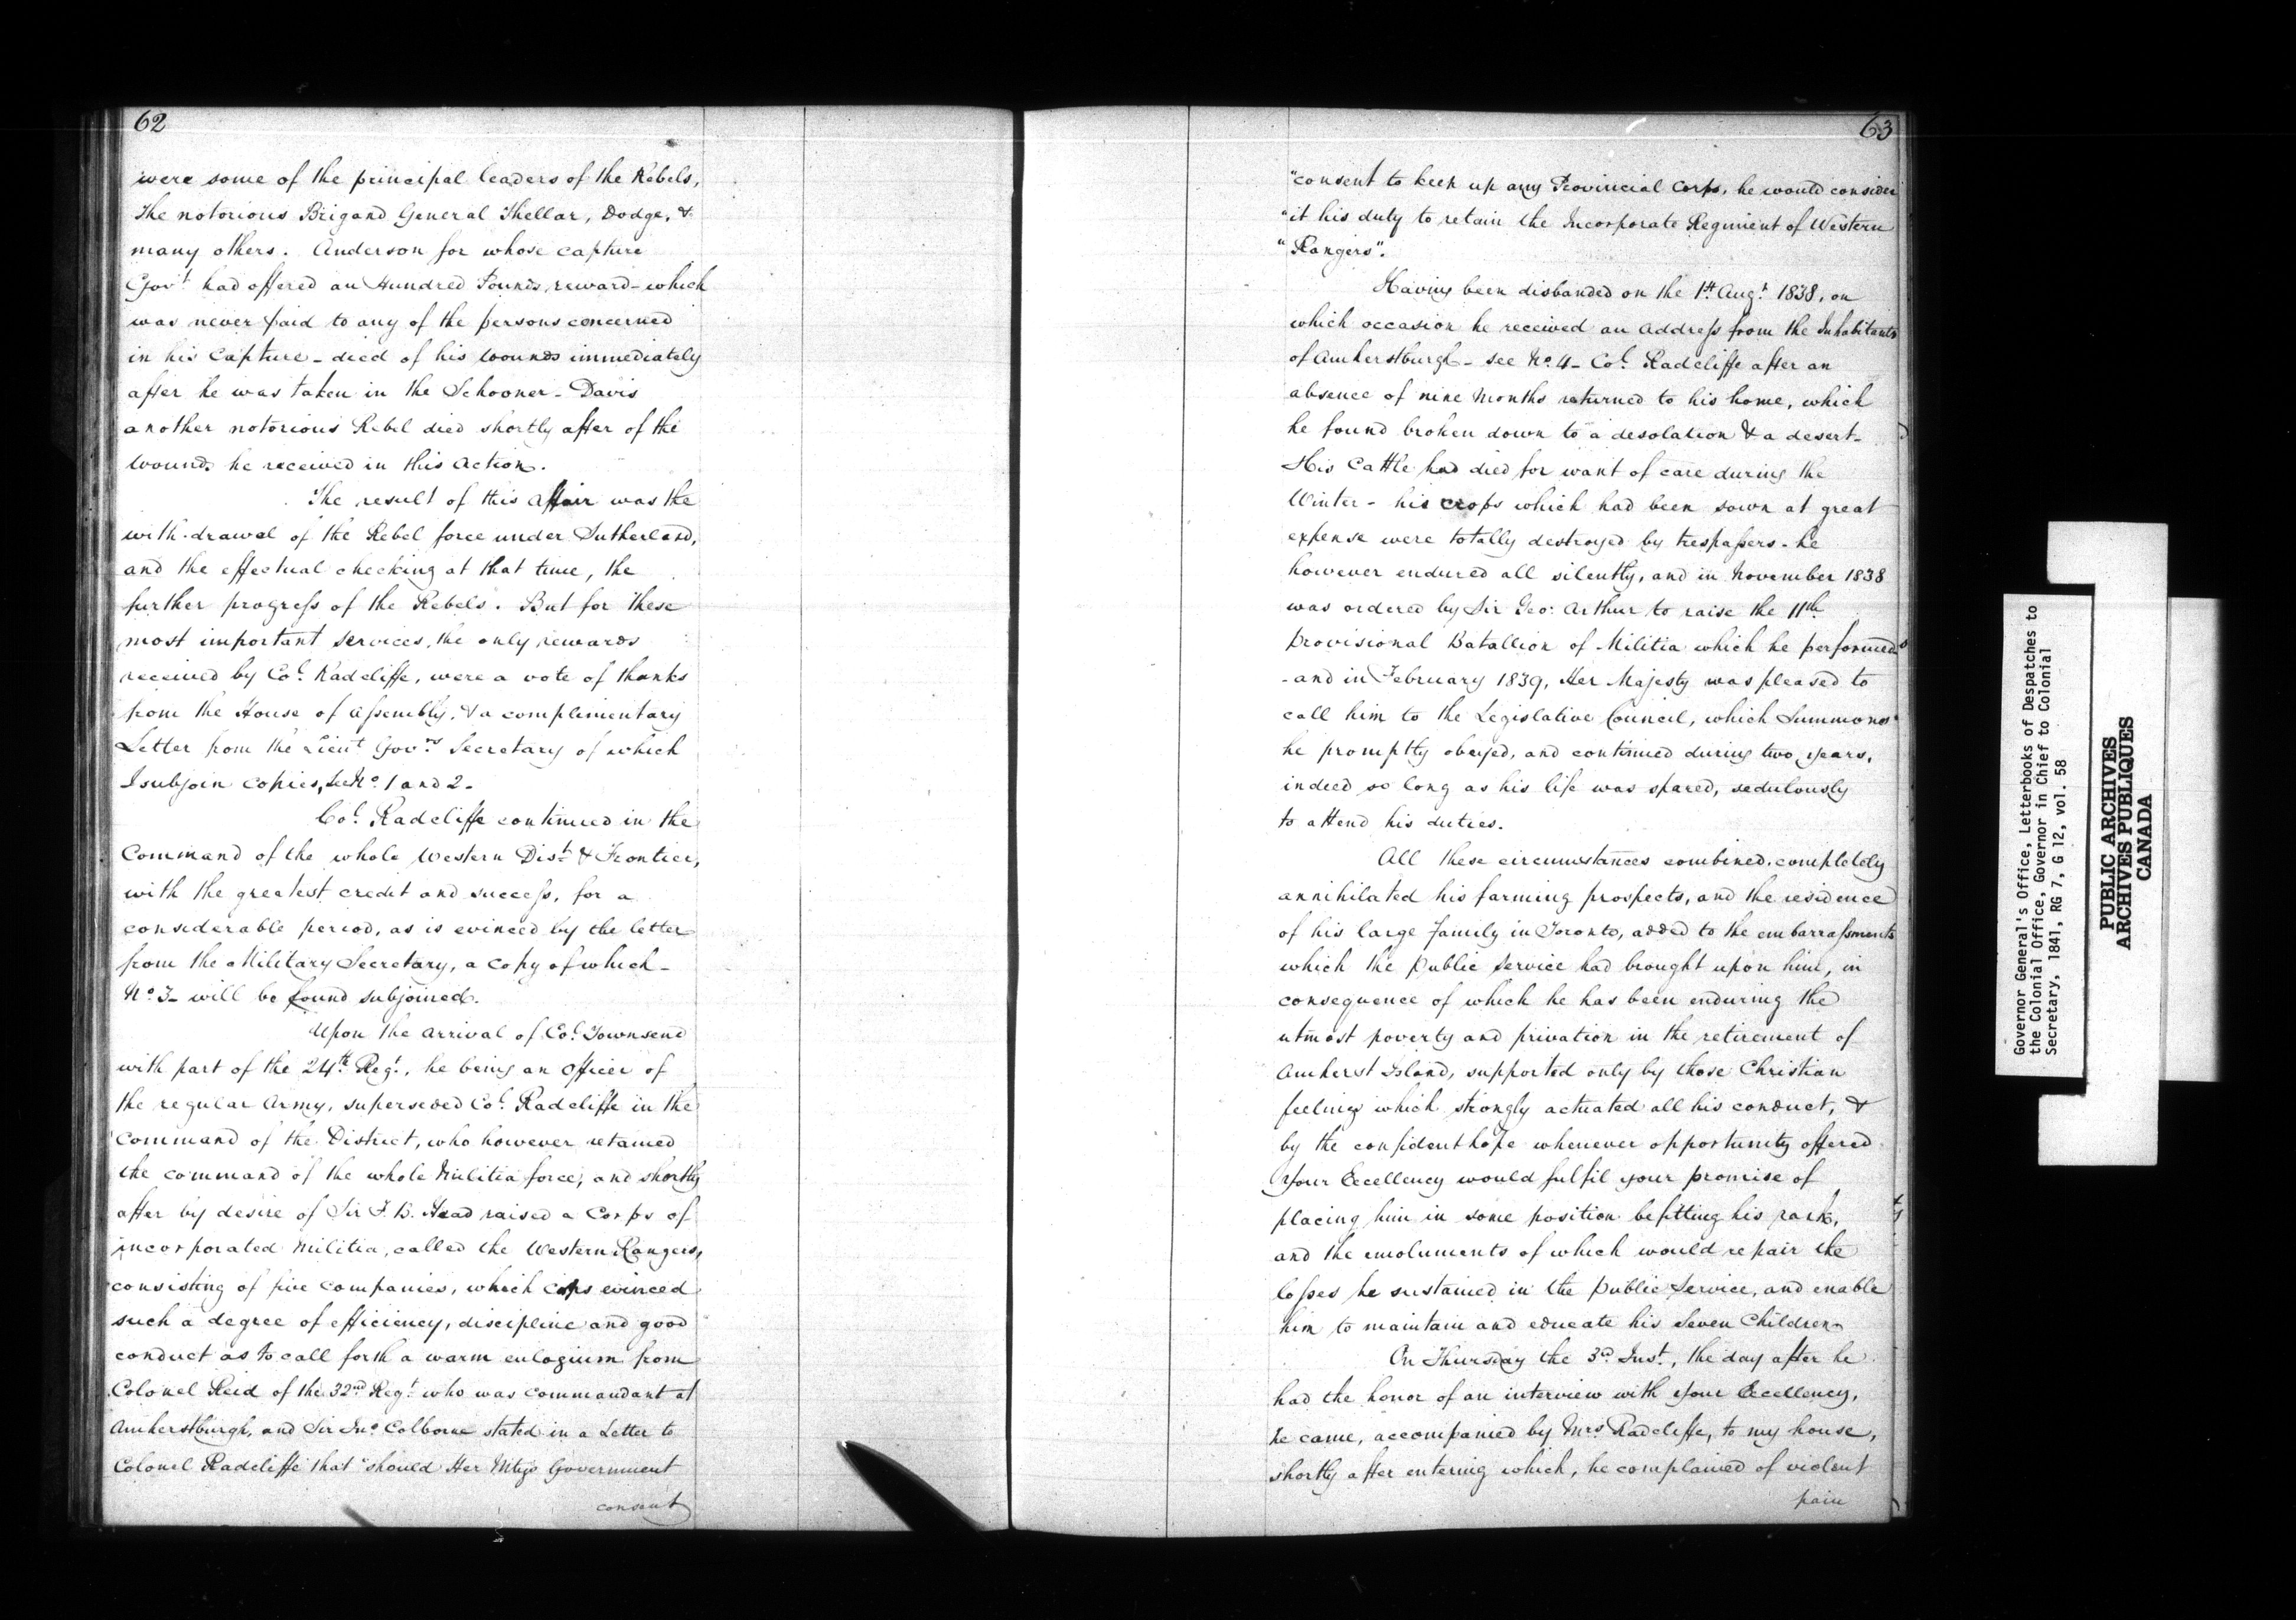 62
were some of the principal leaders of the Rebels,
The notorious Brigand General Thellar, Dodge, &
many others. Anderson for whose capture
Govt had offered an Hundred Pounds reward - which
was never paid to any of the persons concerned
in his Capture - died of his wounds immediately
after he was taken in the Schooner - Davis
another notorious Rebel died shortly after of the
wounds he received in this action.
The result of this affair was the
with-drawal of the Rebel force under Sutherland,
and the effectual checking at that time, the
further progress of the Rebels. But for these
most important services, the only rewards
received by Col. Radcliffe, were a vote of thanks
from the House of Assembly, & a complimentary
Letter from the Lieut Govrs Secretary of which
I subjoin copies, See No 1 and 2 -
Col. Radcliffe continued in the
Command of the whole Western Dist. & Frontier,
with the greatest credit and success, for a
considerable period, as is evinced by the letter
from the Military Secretary, a copy of which -
No 3 - will be found subjoined.
Upon the arrival of Col. Townsend
with part of the 24th Regt., he being an officer of
the regular Army, superseded Col. Radcliffe in the
Command of the District, who however retained
the command of the whole Militia force, and shortly
after by desire of Sir F. B. Head raised a Corps of
incorporated Militia, called the Western Rangers,
consisting of five Companies, which Corps evinced
such a degree of efficiency, discipline and good
conduct as to call forth a warm eulogium from
Colonel Reid of the 32nd Regt who was commandant at
Amherstburgh, and Sir Jno Colborne stated in a Letter to
Colonel Radcliffe that "should Her Mtys Government
consent
63
"consent to keep up any Provincial Corps, he would consider
"it his duty to retain the Incorporate Regiment of Western
"Rangers".
Having been disbanded on the 1st. Augt. 1838, on
which occasion he received an address from the Inhabitants
of Amherstburgh - see No. 4 - Col. Radcliffe after an
absence of nine months returned to his home, which
he found broken down to a desolation & a desert -
His Cattle had died for want of care during the
Winter - his crops which had been sown at great
expense were totally destroyed by trespassers - he
however endured all silently, and in November 1838
was ordered by Sir Geo. Arthur to raise the 11th
Provisional Batallion of Militia which he performed
- and in February 1839, Her Majesty was pleased to
call him to the Legislative Council, which Summons
he promptly obeyed, and continued during two years,
indeed so long as his life was spared, sedulously
to attend his duties.
All these circumstances combined, completely
annihilated his farming prospects, and the residence
of his large family in Toronto, added to the embarrassments
which the public service had brought upon him, in
consequence of which he has been enduring the
utmost poverty and privation in the retirement of
Amherst Island, supported only by those Christian
feelings which strongly actuated all his conduct, &
by the confident hope whenever opportunity offered
Your Excellency would fulfil your promise of
placing him in some position befitting his rank,
and the emoluments of which would repair the
losses he sustained in the public Service, and enable
him to maintain and educate his Seven Children
On Thursday the 3rd Inst., the day after he
had the honor of an interview with Your Excellency,
he came, accompanied by Mrs. Radcliffe, to my house,
shortly after entering which, he complained of violent
pain
Governor General's Office, Letterbooks of Despatches to
the Colonial Office, Governor in Chief to Colonial
Secretary, 1841, RG 7, G 12, vol. 58
PUBLIC ARCHIVES
ARCHIVES PUBLIQUES
CANADA